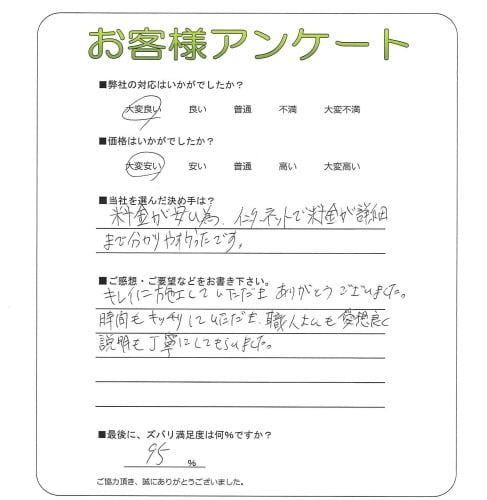 お客様アンケート
■弊社の対応はいかがでしたか？
大変良い 良い 普通 不満 大変不満
■価格はいかがでしたか？
大変安い 安い 普通 高い 大変高い
■当社を選んだ決め手は？
料金が安い為、インターネットで料金が詳細
まで分かりやすかったです。
■ご感想・ご要望などをお書き下さい。
キレイに施工していただき ありがとうございました。
時間もキッチリしていただき、職人さんも愛想良く
説明も丁寧にしてもらいました。
■最後に、ズバリ満足度は何％ですか？
95 %
ご協力頂き、誠にありがとうございました。